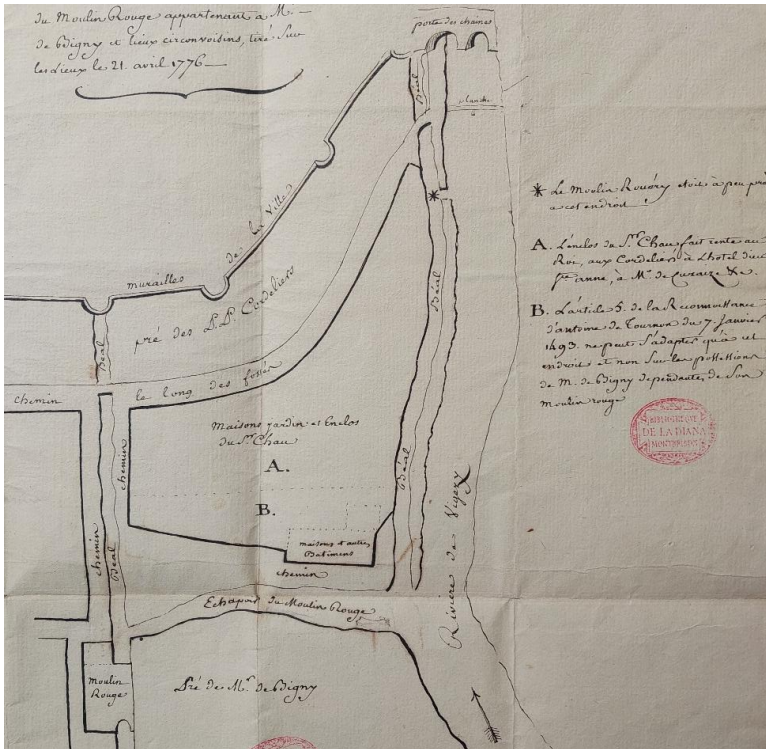 du Moulin Rouge appartenant a M.
de Bigny et lieux circonvoisins, tiré sur
les Lieux le 21. avril 1776
porte des chaines
Béal
planche
murailles
de la Ville
pré des P.P. Cordeliers
Béal
chemin
le long des fossés
Béal
Maisons jardin et Enclos
du Sr. Chau
A.
B.
maisons et autres
Batimens
chemin
chemin
chemin
Béal
Béal
Echapoir du Moulin Rouge
Riviere de Vizezy
Moulin
Rouge
Pré de Mr. de Bigny
* Le Moulin Rouéry etoit à peu près
a cet endroit
A. L'enclos du Sr. Chau fait rente au
Roi, aux Cordeliers à L'hotel dieu
Ste anne, à Mr. de Curaize &c.
B. L'article 5. de la Reconnoissance
d'antoine de Tournon du 7. Janvier
1493. ne peut s'adapter qu'à cet
endroit et non sur les possessions
de M. de Bigny dependantes de son
moulin rouge
BIBLIOTHEQUE
DE LA DIANA
MONTBRISON